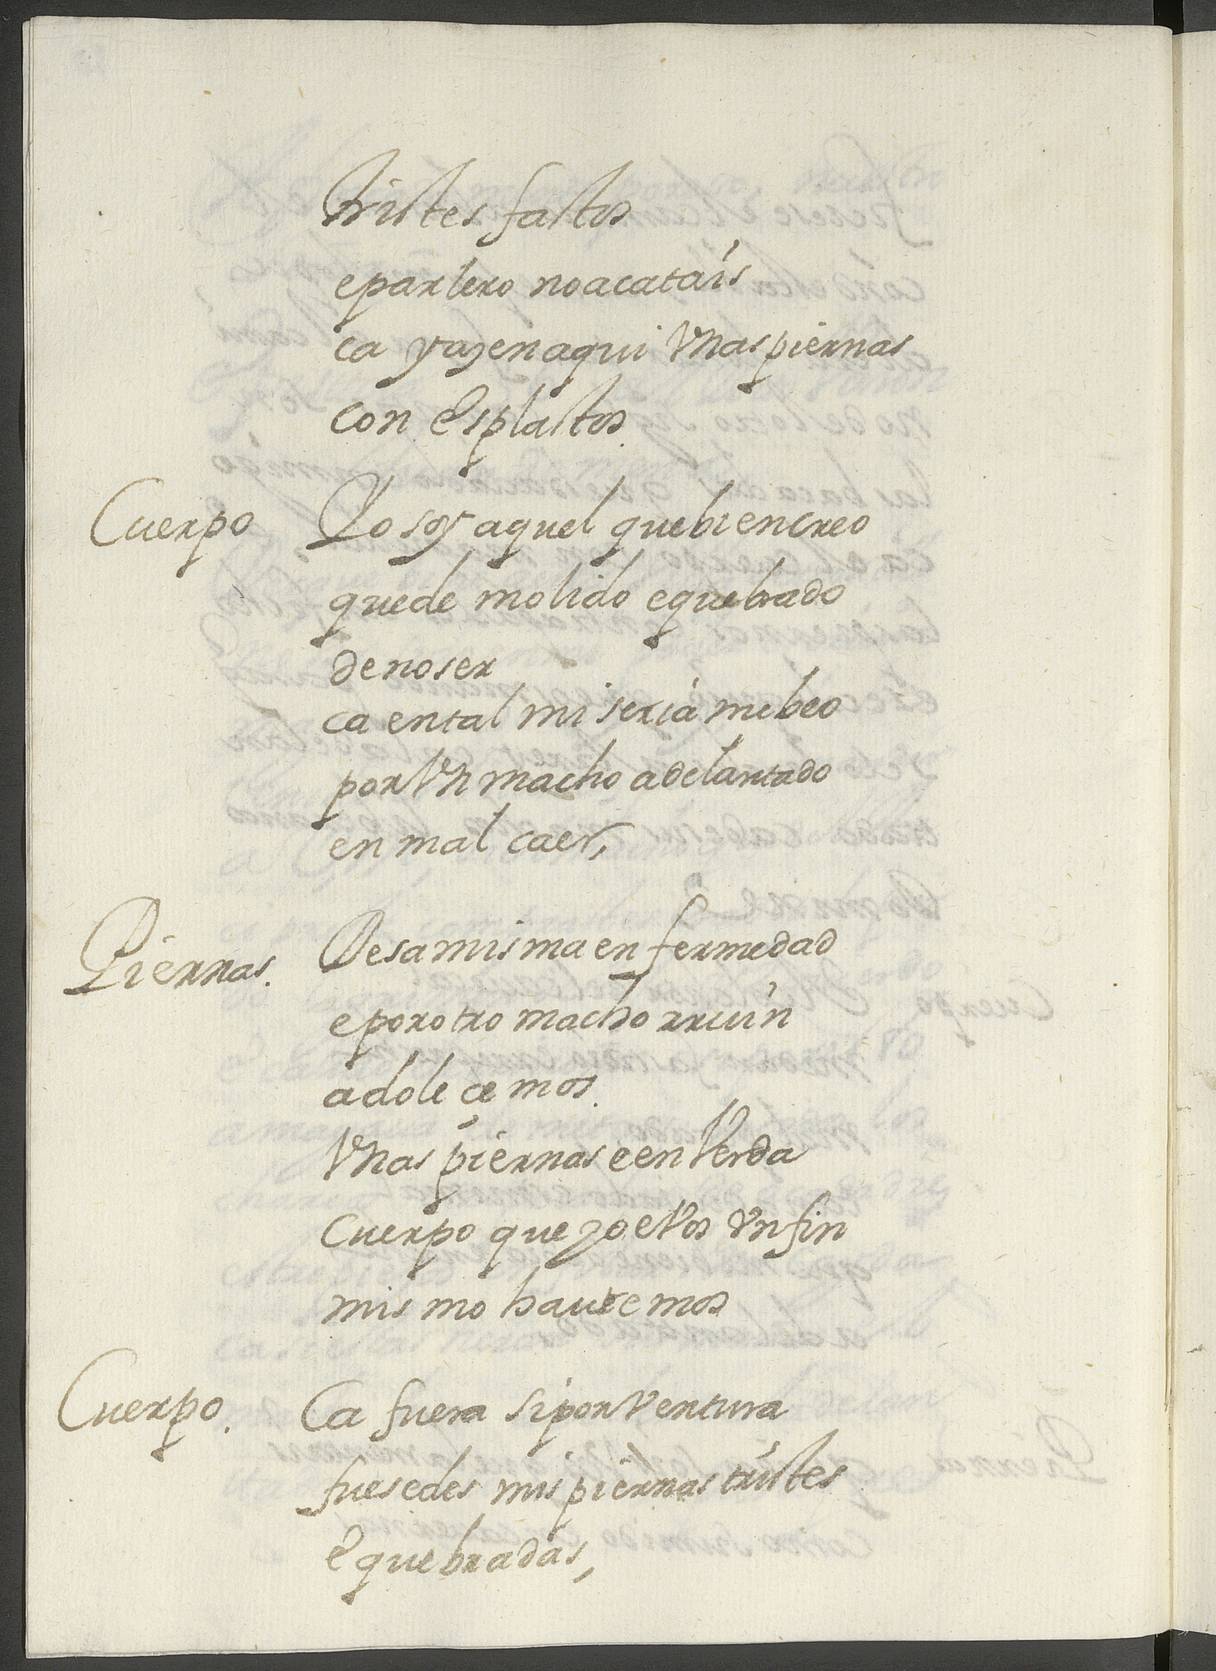 tristes fastos
e parlero no acatais
ca yazen aqui Vnas piernas
con esplastos.
Cuerpo Yo soy aquel que bien creo
quede molido e quebrado
de no ser
ca en tal miseria me beo
por Vn macho adelantado
en mal caer,
Piernas. De sa misma enfermedad
e por otro macho rruin
adoleçemos.
Vnas piernas e en Verda
Cuerpo que yo e Vos Vn fin
mismo hauremos
Cuerpo. Ca fuera si por Ventura
fuesedes mis piernas tristes
e quebradas,